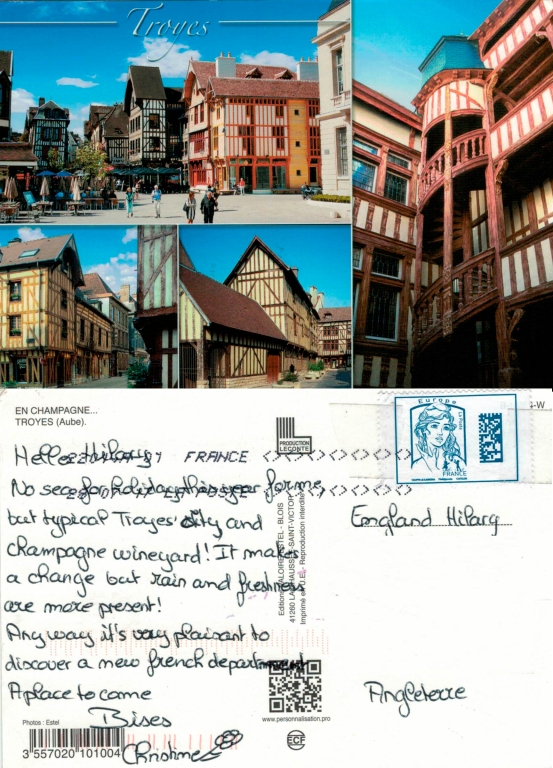 Troyes
EN CHAMPAGNE...
TROYES (Aube).
PRODUCTION
LECONTE
Europe
FRANCE
FRANCE
Hello Hilary
No sea for holiday this year for me
but typical Troyes' city and
champagne wineyard! It makes
a change but rain and freshness
are more present!
Any way it's very plaisant to
discover a new french department
A place to come
Bises
Christine
England Hilary
Angleterre
41260 LA CHAUSSÉE-SAINT-VICTOR
Imprimé en U.E. - Reproduction interdite
www.personnalisation.pro
Photos : Estel
3 557020 101004